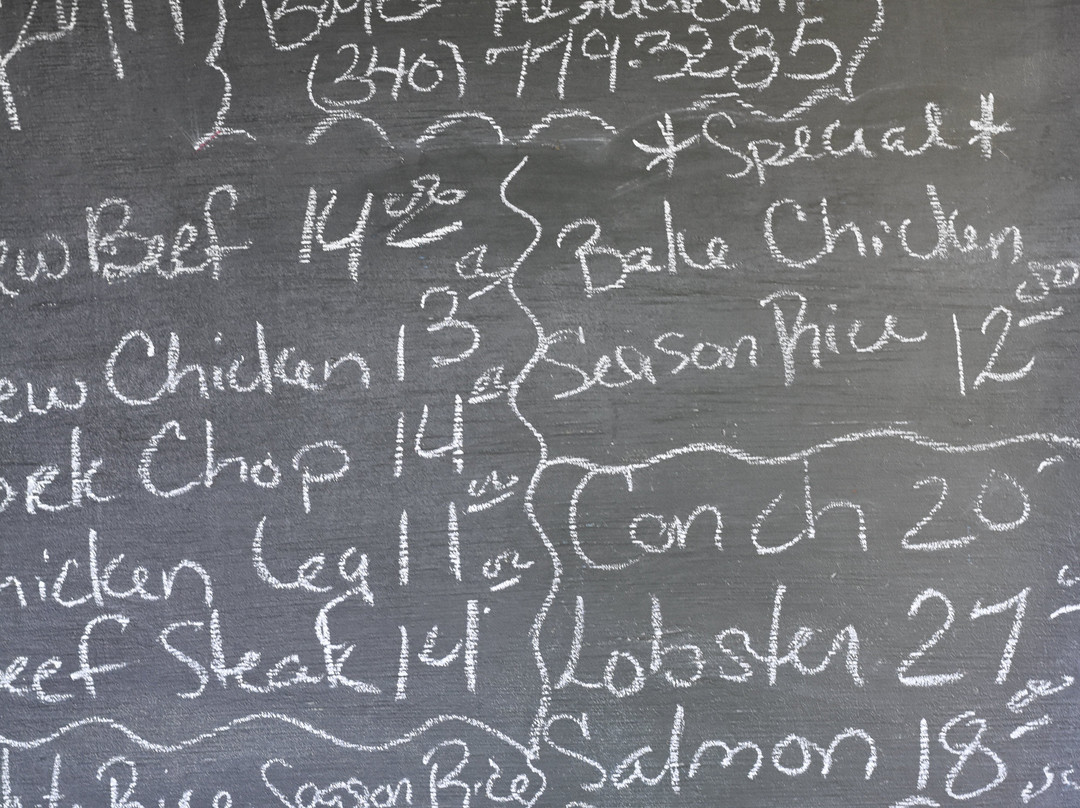 (340) 779-3285
*Special*
ew Beef 14.00
ew Chicken 13.00
ork Chop 14.00
hicken Leg 11.00
eef Steak 14.00
Rice Season Rice
Bake Chicken
Season Rice 12.00
Conch 20
Lobster 27
Salmon 18.00